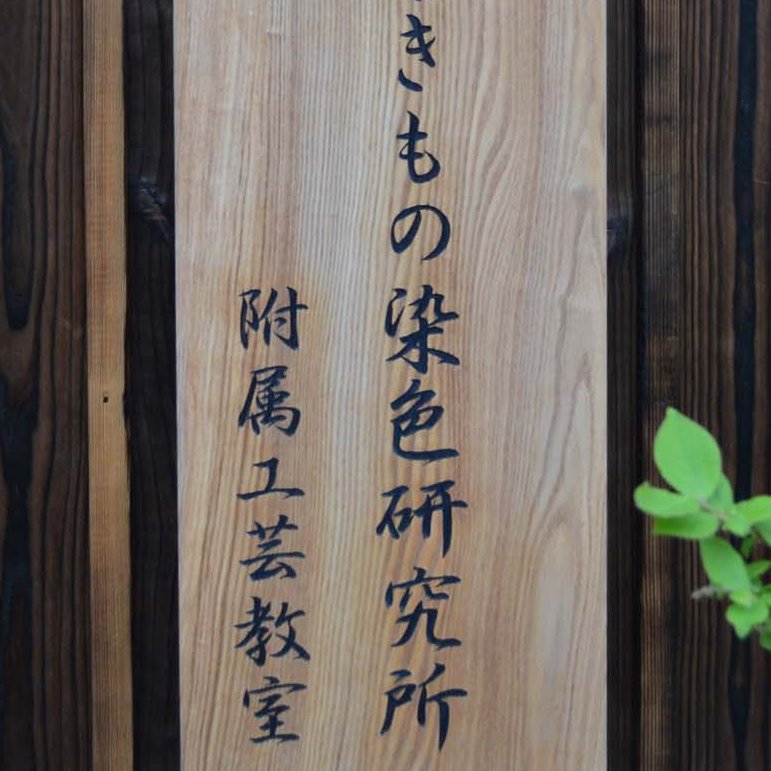 きもの染色研究所
附属工芸教室